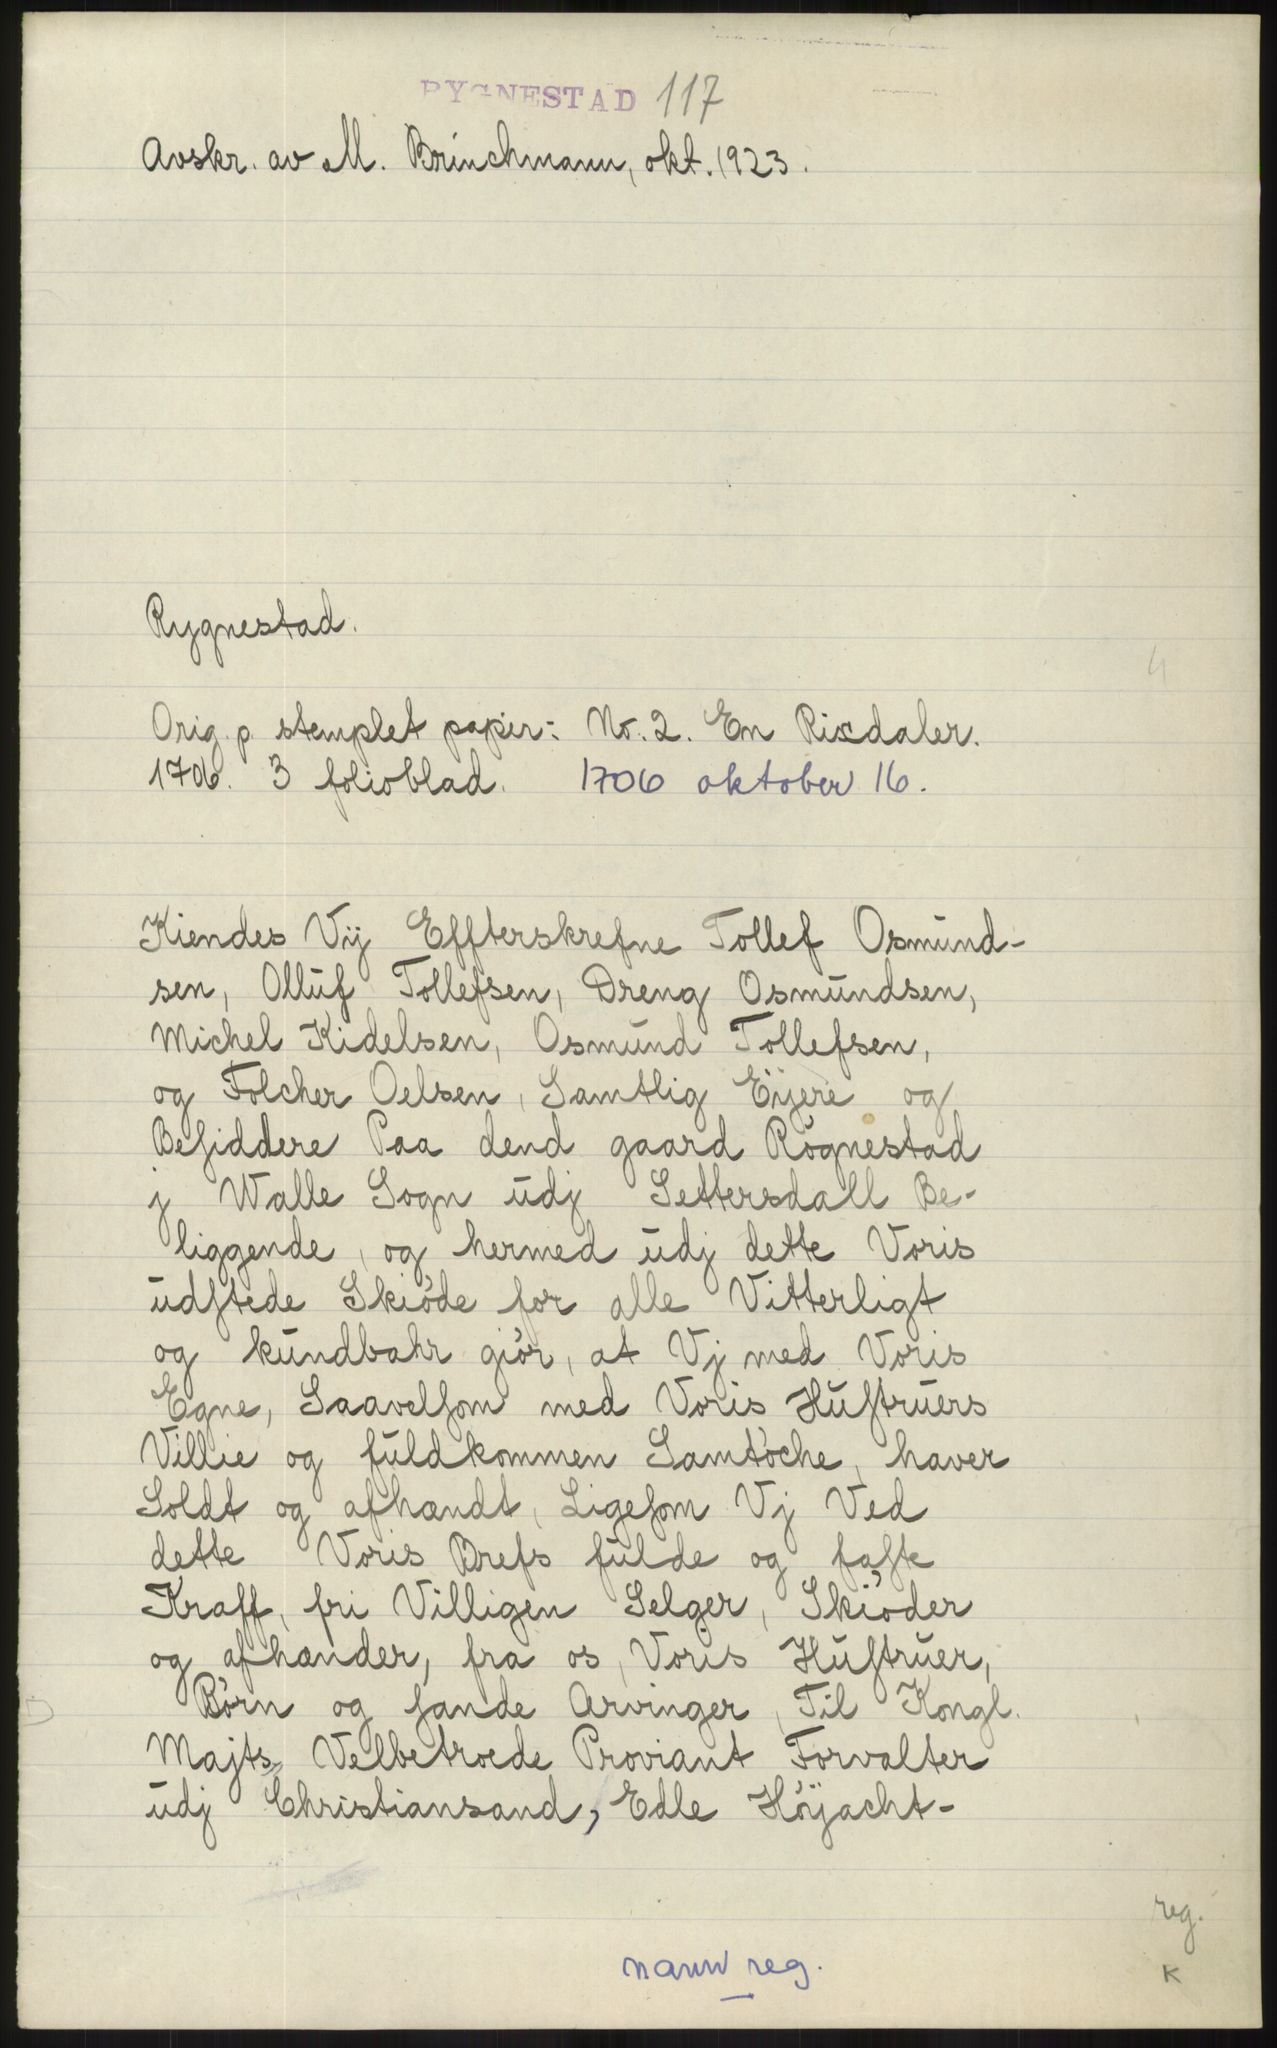 RYGNESTAD 117
Avskr. av M. Brinchmann, okt. 1923.
Rygnestad.
4
Orig. p. stemplet papir: No. 2. En Rixdaler.
1706. 3 folioblad. 1706 oktober 16.
Kiendes Vij Effterskrefne Tollef Osmund-
sen, Olluf Tollefsen, Dreng Osmundsen,
Michel Kidelsen, Osmund Tollefsen,
og Folcher Oelsen, Samtlig Eijere og
Besiddere Paa dend gaard Rögnestad
j Walle Sogn udj Settersdall Be-
liggende, og hermed udj dette Voris
udstede Skiöde for alle Vitterligt
og kundbahr giör, at Vj med Voris
Egne, Saavelsom med Voris Hustruers
Villie og fuldkommen Samtöche, haver
Soldt og afhændt, Ligesom Vj Ved
dette Voris Brefs fulde og faste
Kraff, fri Villigen Selger, Skiöder
og afhænder, fra os, Voris Hustruer,
Börn og sande Arvinger, Til Kongl.
Majts Velbetroede Proviant Forvalter
udj Christiansand, Edle Höijacht-
reg.
K
navn reg.